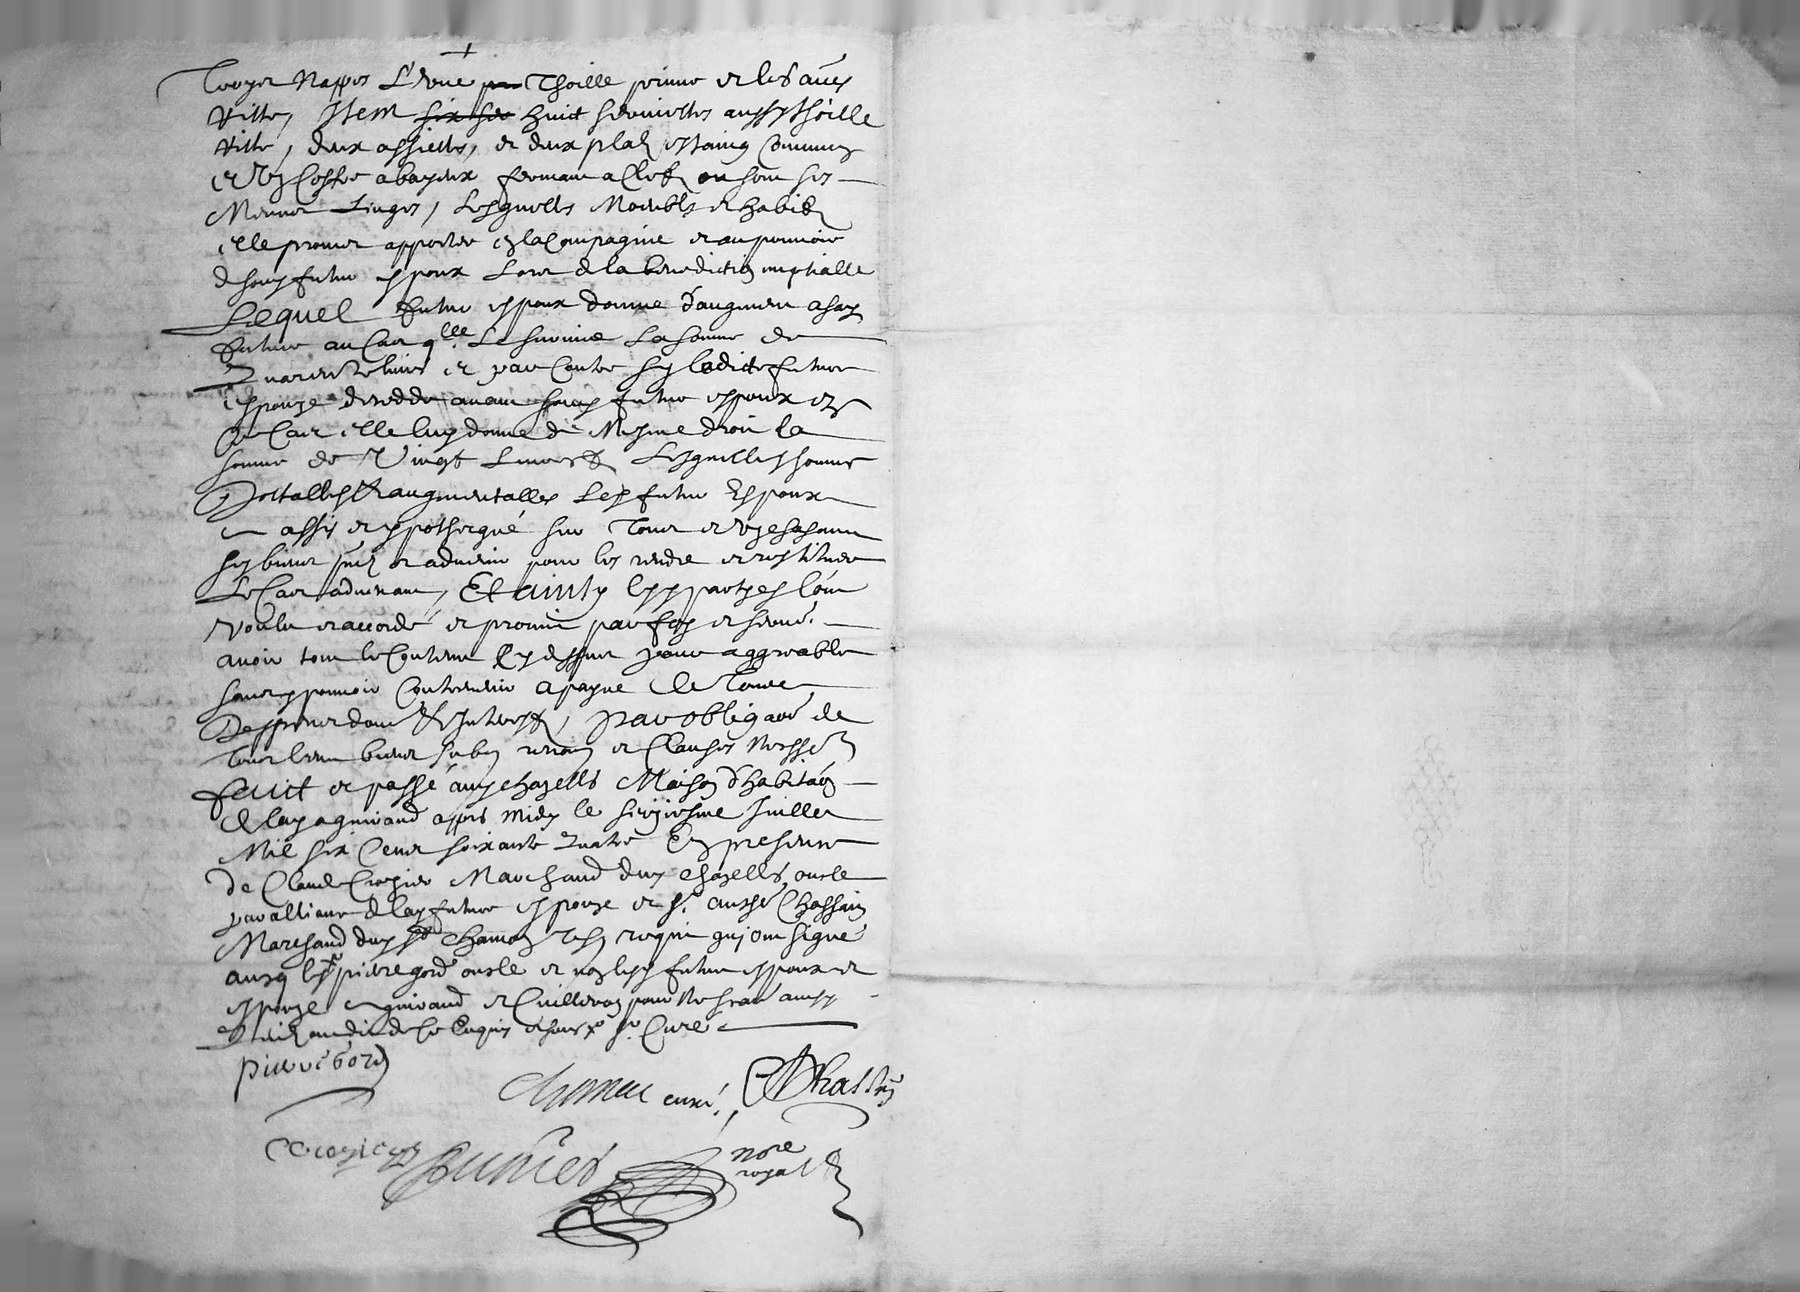 Troys Nappes L'une Thoille prime et les au(tr)es
Ritte, Item six ser huict serviettes aussy thoille
Ritte, deux assiettes, et deux platz estaing commung
et Ung Coffre a bayeux fermant a Clefz ou sont ses
Menus Linges, Lesquells Meubles et habitz
elle promet apporter en la Compagnie et au pouvoir
de son futur espoux Lors de la benediction nuptialle
Lequel futur espoux donne d'augment a sa
future au Cas qlle Le survive La somme de
Quarente livres et par Contre sy ladicte future
espouze decedde avant son futur espoux et
Cas elle luy donne de Mesme droit la
somme de Vingt Livres Lesquelles sommes
Dottalles & augmentalles Led futur Espoux
assis et ypothecqué sur Tous et Ungs chascuns
ses biens pntz et advenir pour les rendre et restituer
Le Cas advenant, Et ainsy lesd partyes l'ont
Voulu et accordé et promis par foy et serment
avoir tout le Contenu Cy dessus pour aggreable
sans y pouvoir Contrevenir a payne de Tous
Despens dom & Interestz, par obligaon de
Tous leurs biens subn renon et Clauses Ness(air)es
faict et passé aux chazells Maison d'habitaon
de lad aguiraud appres midy le seiziesme Juillet
Mil six Cens soixante Quatre En presence
de Claude Crozier Marchand dud chazells, oncle
par alliance de lad future espouze et sr anthe Chassain
Marchand dud st chamond tesm requis qui ont signé
avecq led pierre gord oncle et non lesd futur espoux et
espouze aguiraud et Cuilleron pour ne scavoir aussy
sr Curé
pierre Gord
Chomer curé, Chassain
Crozier
nore
royal